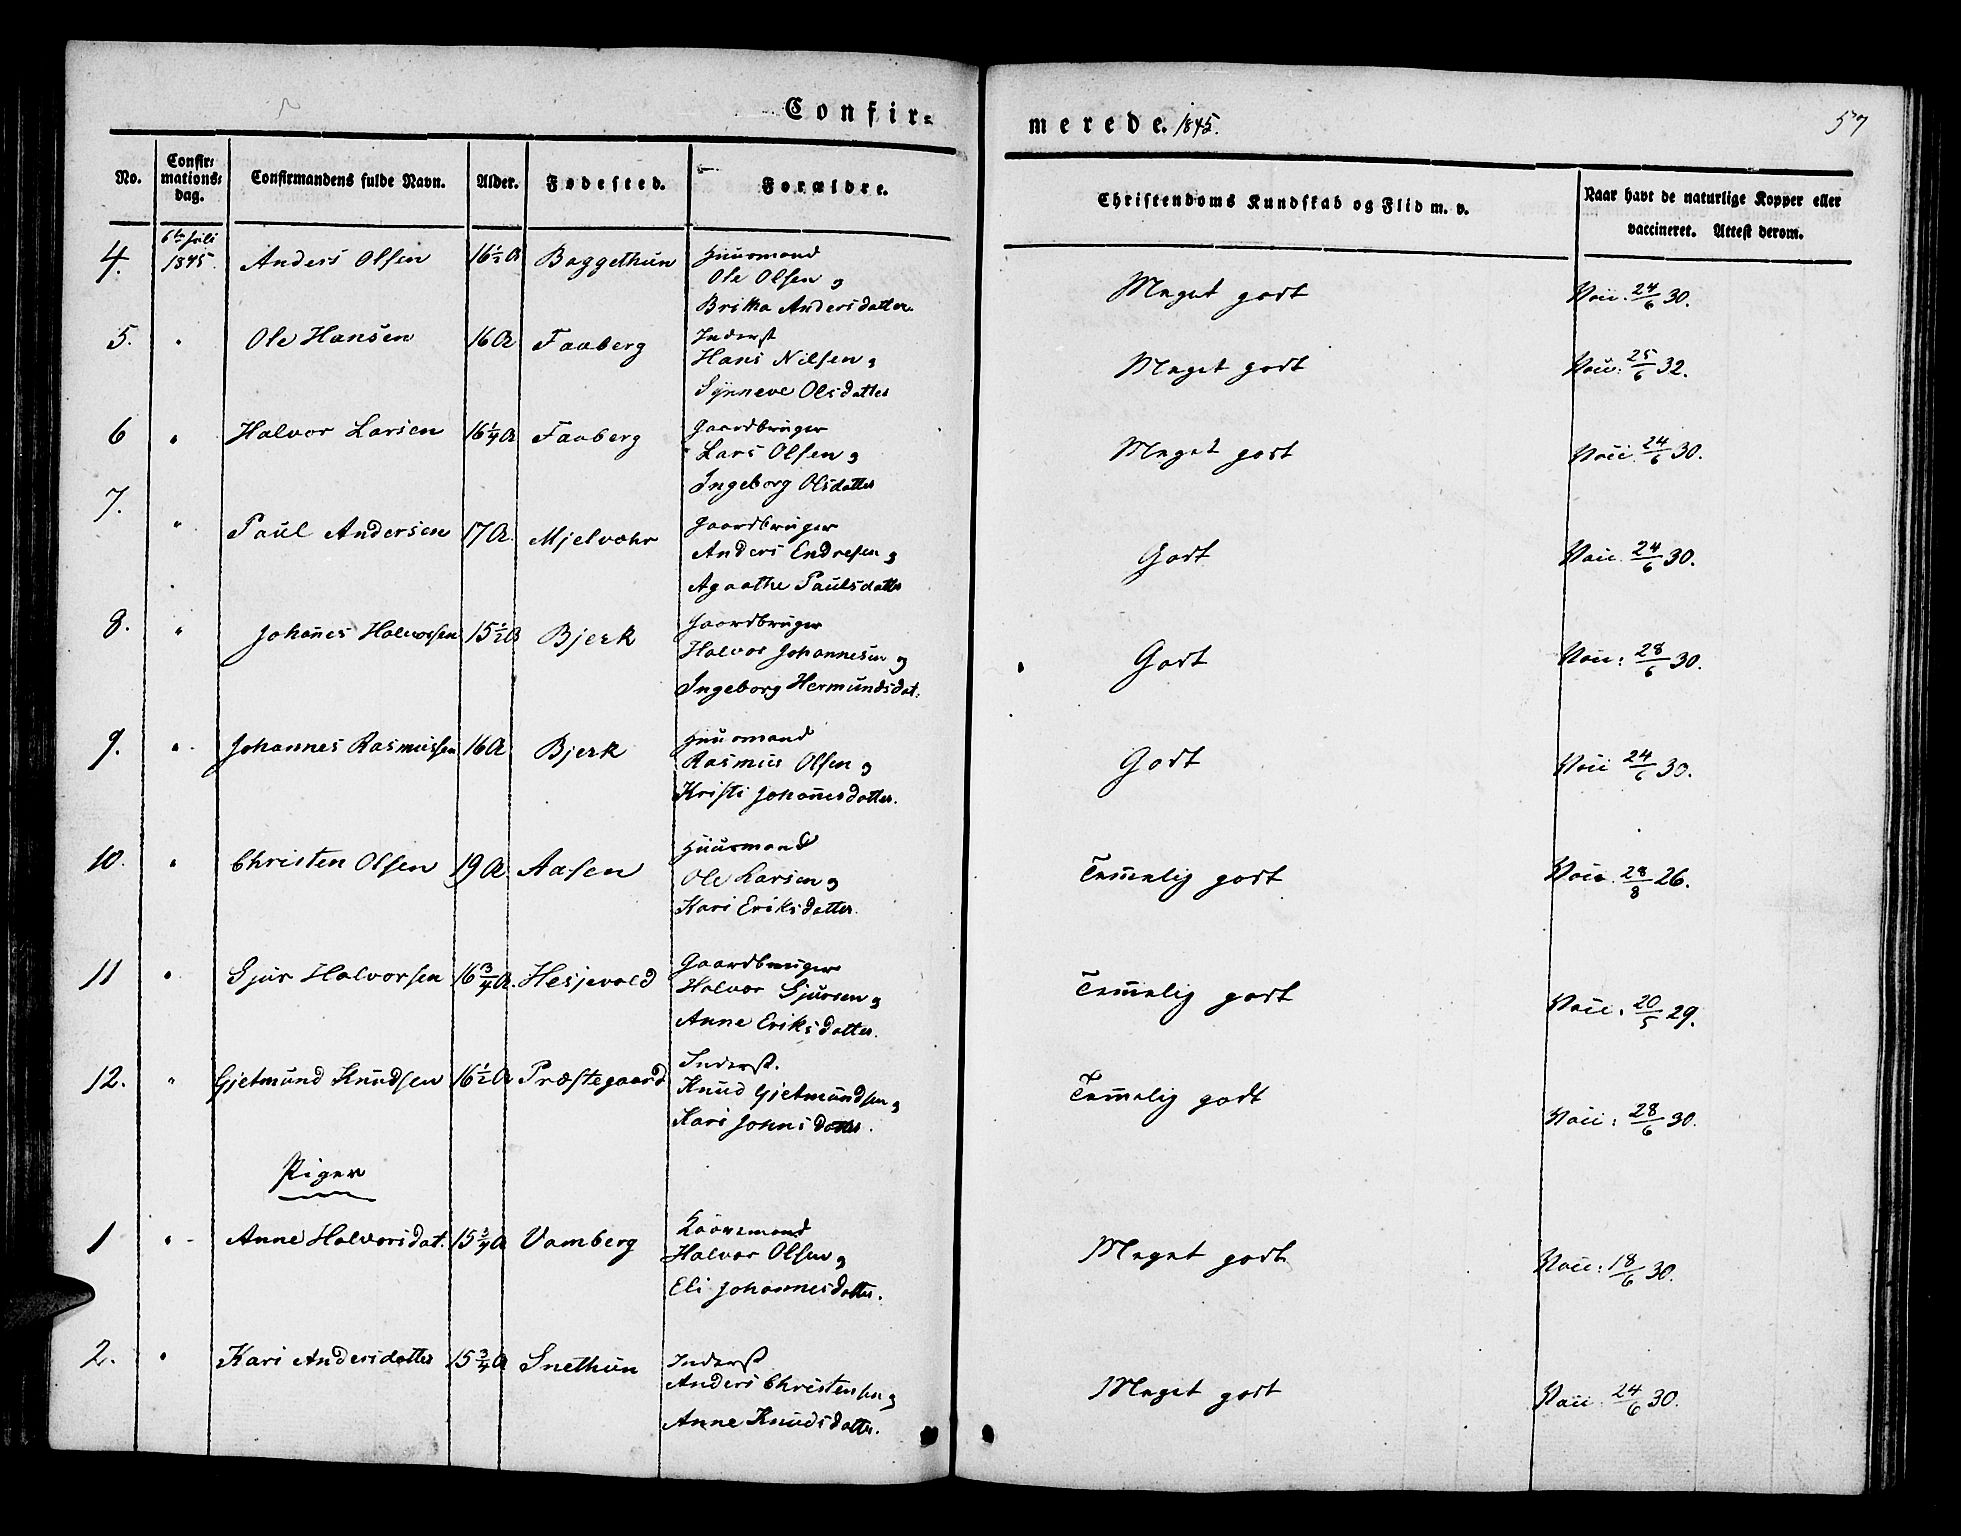 Confir=
merede. 1845.
57
No.
Confir=
mations=
dag.
Confirmandens fulde Navn.
Alder.
Fødested.
Forældre.
Christendoms Kundskab og Flid m. v.
Naar havt de naturlige Kopper eller
vaccineret. Attest derom.
4. 6te Juli 1845. Anders Olsen 16½ A Baggethun Huusmand
Ole Olsen og
Britha Andersdatter.
Meget godt Vacc. 24/6 30.
5. " Ole Hansen 16 A Faaberg Inderst
Hans Nilsen og
Synneve Olsdatter
Meget godt Vacc. 25/6 32.
6 " Halvor Larsen 16¼ A Faaberg Gaardbruger
Lars Olsen og
Ingeborg Olsdatter
Meget godt Vacc. 24/6 30.
7. " Paul Andersen 17 A. Mjelvæhr Gaardbruger
Anders Endresen og
Agaathe Paulsdatter
Godt Vacc. 24/6 30.
8. " Johanes Halvorsen 15½ A Bjerk Gaardbruger
Halvor Johannesen og
Ingeborg Hermundsdat:
Godt Vacc: 28/6 30.
9. " Johannes Rasmussen 16 A Bjerk Huusmand
Rasmus Olsen og
Kristi Johanesdatter.
Godt Vacc 24/6 30.
10. " Christen Olsen 19 A Aasen Huusmand
Ole Larsen og
Kari Eriksdatter.
Temelig godt Vacc. 28/8 26.
11 " Sjur Halvorsen 16¾ A. Hesjevold Gaardbruger
Halvor Sjursen og
Anne Eriksdatter.
Temelig godt Vacc. 20/5 29.
12. " Gjetmund Knudsen 16½ A Præstegaard Inderst.
Knud Gjetmundsen og
Kari Johnsdatter.
Temelig godt Vacc: 28/6 30.
Piger
1 " Anne Halvorsdat. 15¾ A Vamberg Kaarmand
Halvor Olsen og
Eli Johannesdatter.
Meget godt Vacc: 18/6 30.
2. " Kari Andersdatter 15¾ A Snethun Inderst
Anders Christensen og
Anne Knudsdatter.
Meget godt Vacc. 24/6 30.